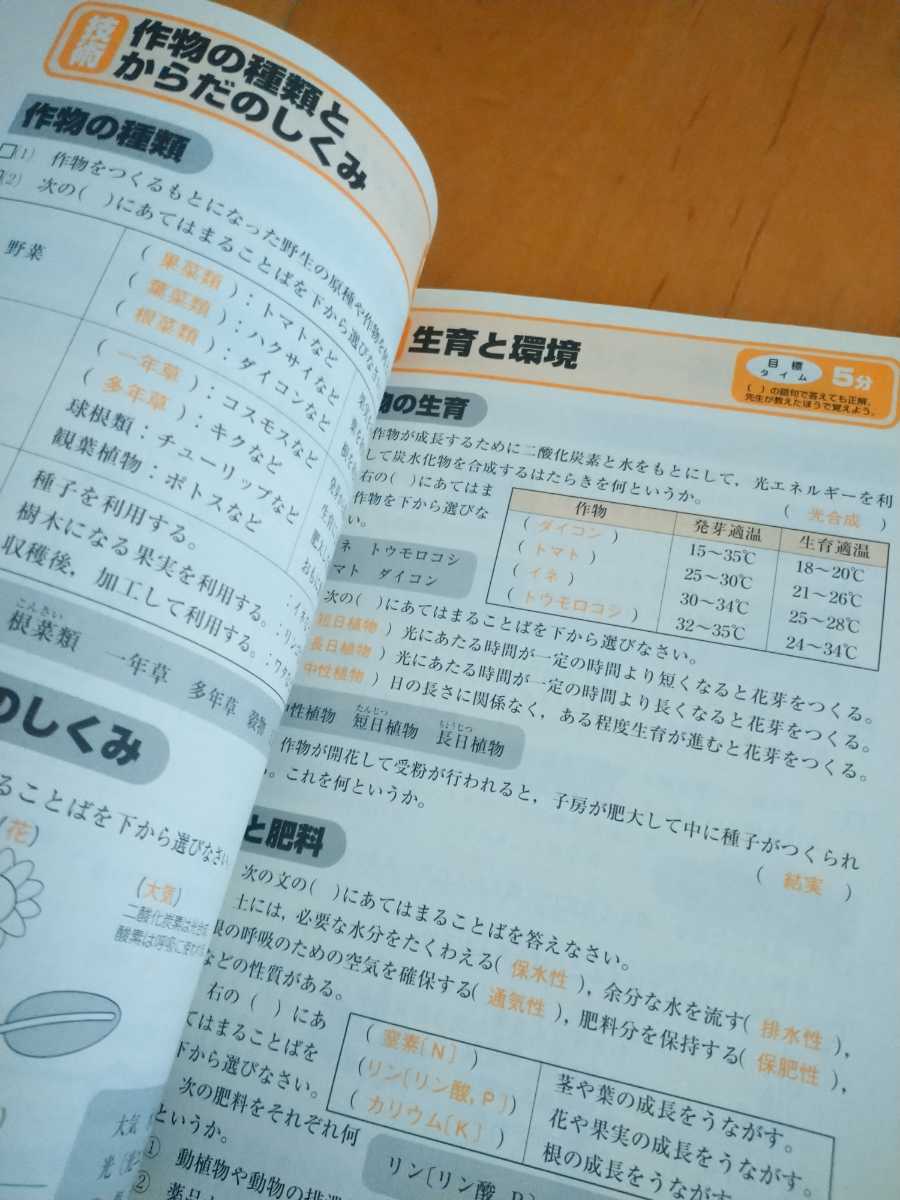 技術
作物の種類と
からだのしくみ
作物の種類
□(1) 作物をつくるもとになった野生の原種や作物を
(2) 次の( )にあてはまることばを下から選びなさ
野菜
(果菜類):トマトなど
(葉菜類):ハクサイなど
(根菜類):ダイコンなど
(一年草):コスモスなど
(多年草):キクなど
球根類:チューリップなど
観葉植物:ポトスなど
種子を利用する。
樹木になる果実を利用する。
収穫後,加工して利用する。
こんさい
根菜類 一年草 多年草 穀物
のしくみ
ることばを下から選びなさい
(花)
(大気)
二酸化炭素は光合成
酸素は呼吸に使われる
大気
光
生育と環境
目標
タイム
5分
( )の語句で答えても正解。
先生が教えたほうで覚えよう。
物の生育
作物が成長するために二酸化炭素と水をもとにして,光エネルギーを利
して炭水化物を合成するはたらきを何というか。
(光合成)
右の( )にあてはま
作物を下から選びな
い。
ネ トウモロコシ
マト ダイコン
作物 発芽適温 生育適温
(ダイコン) 15〜35℃ 18〜20℃
(トマト) 25〜30℃ 21〜26℃
(イネ) 30〜34℃ 25〜28℃
(トウモロコシ) 32〜35℃ 24〜34℃
次の( )にあてはまることばを下から選びなさい。
短日植物)光にあたる時間が一定の時間より短くなると花芽をつくる。
長日植物)光にあたる時間が一定の時間より長くなると花芽をつくる。
中性植物)日の長さに関係なく,ある程度生育が進むと花芽をつくる。
たんじつ ちょうじつ
中性植物 短日植物 長日植物
作物が開花して受粉が行われると,子房が肥大して中に種子がつくられ
。これを何というか。
(結実)
と肥料
次の文の( )にあてはまることばを答えなさい。
土には,必要な水分をたくわえる(保水性),余分な水を流す(排水性),
根の呼吸のための空気を確保する(通気性),肥料分を保持する(保肥性),
などの性質がある。
右の( )にあ
てはまることばを
下から選びなさい。
(窒素[N]) 茎や葉の成長をうながす。
(リン[リン酸,P]) 花や果実の成長をうながす。
(カリウム[K]) 根の成長をうながす。
次の肥料をそれぞれ何
というか。
リン[リン酸
① 動植物や動物の排
②